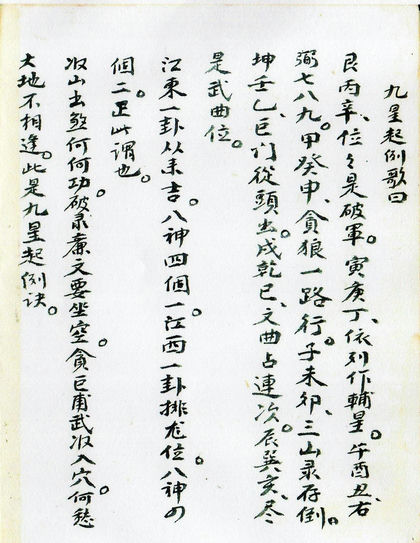 九星起例歌曰
艮丙辛、位々是破軍。寅庚丁、依列作輔星。午酉丑、右
弼七八九。甲癸申、貪狼一路行。子未卯、三山录存倒。
坤壬乙、巨门從頭出。戌乾巳、文曲占連次。辰巽亥、尽
是武曲位。
江東一卦从来吉。八神四個一江西一卦排龙位。八神四
個二。正此謂也。
収山出煞何何功。破录廉文要坐空。貪巨甫武収入穴。何愁
大地不相逢。此是九星起例诀。